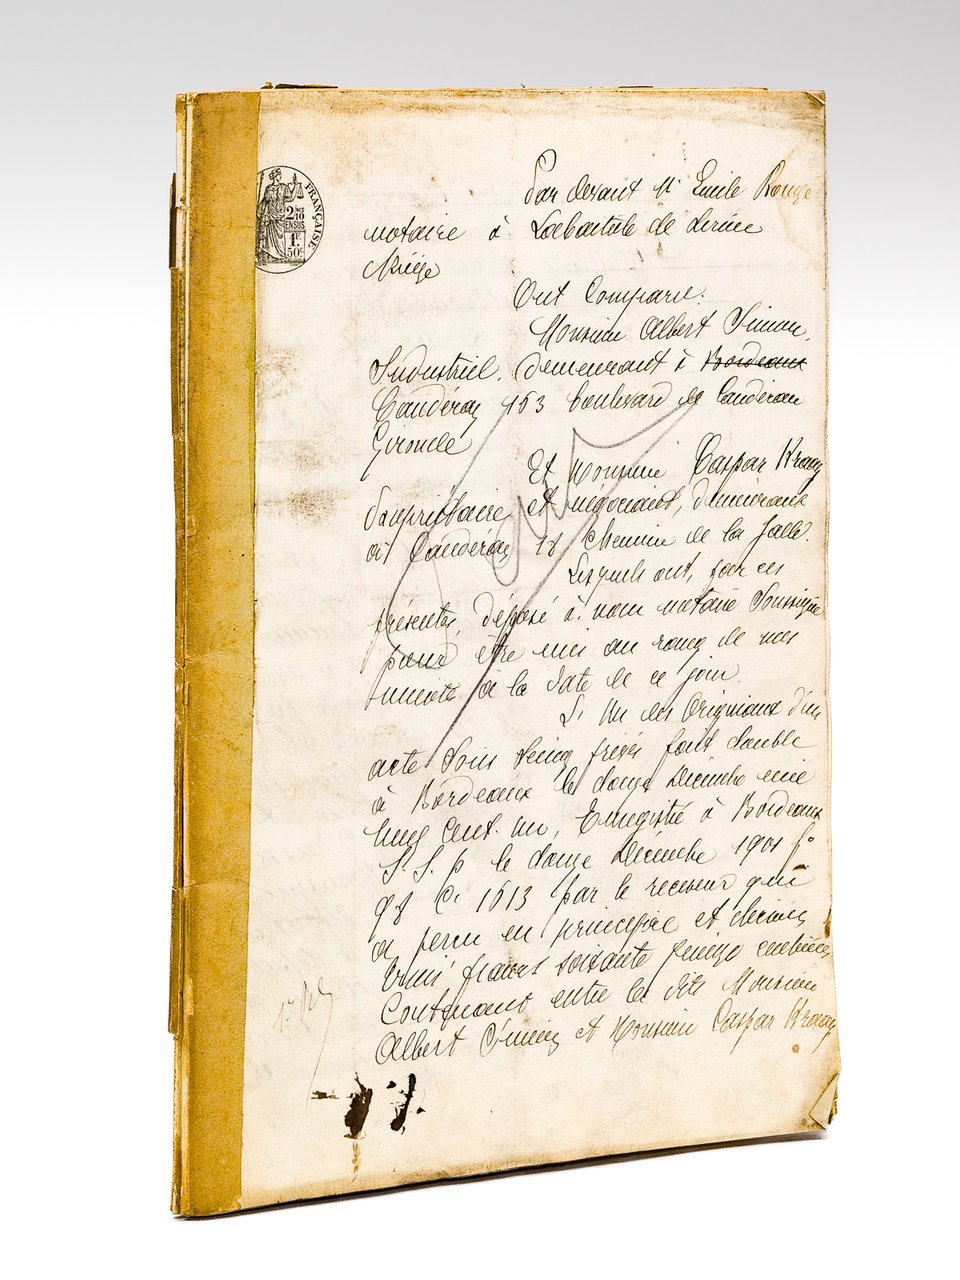 FRANÇAISE
2/10mes
EN SUS
1F.
50c
Par devant Me Emile Rouge
notaire à Labastide de Sérou
Ariège
Ont Comparu:
Monsieur Albert Simon,
Industriel, demeurant à Bordeaux
Caudéran 153 boulevard de Caudéran
Gironde
Et Monsieur Caspar
Propriétaire et négociant, demeurant
à Caudéran 18 chemin de la
Lesquels ont, par ces
présentes, déposé à nous notaire Soussigné
pour être mis au rang de nos
minutes à la date de ce jour.
L'Un des Originaux d'un
acte Sous Seing privés fait double
à Bordeaux le douze Décembre mil
neuf cent un, Enregistré à Bordeaux
S.S.P. le douze Décembre 1901 fo
98 C. 1613 par le receveur qui
a perçu en principal et décimes
francs soixante quinze centimes
Contenant entre les dits Monsieur
Albert Simon et Monsieur Caspar